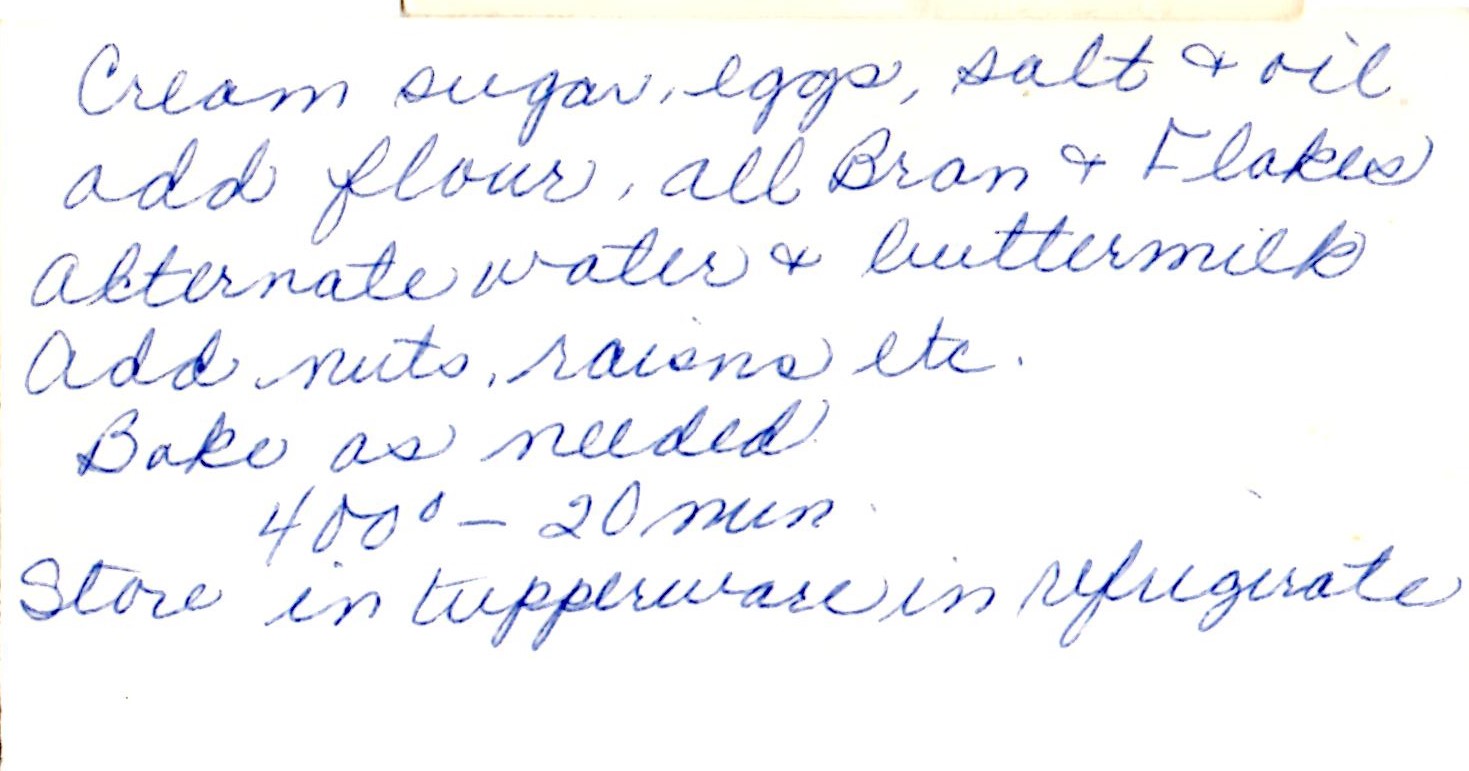 Cream sugar, eggs, salt & oil
add flour, all Bran & Flakes
Alternate water & buttermilk
Add nuts, raisns etc.
Bake as needed
400° - 20 min.
Store in tupperware in refrigirate